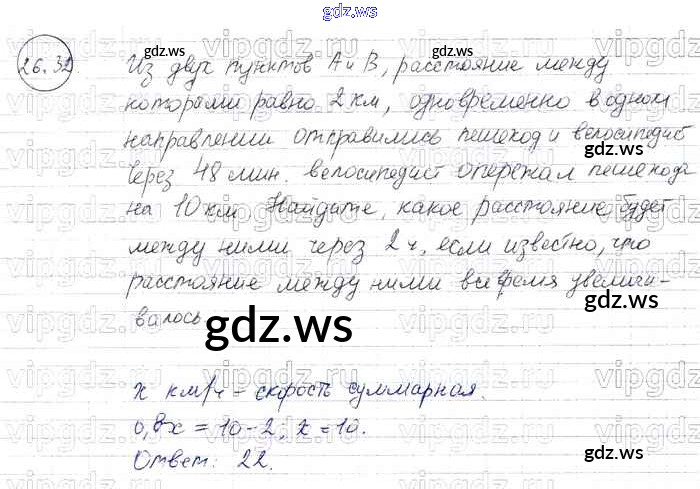 gdz.ws
gdz.ws
26.32
Из двух пунктов А и В, расстояние между
которыми равно 2 км, одновременно в одном
направлении отправились пешеход и велосипедист
gdz.ws
Через 48 мин. велосипедист опережал пешехода
на 10 км. Найдите, какое расстояние будет
между ними через 2 ч, если известно, что
расстояние между ними все время увеличи-
валось
gdz.ws
x км/ч – скорость суммарная.
0,8x = 10-2; x = 10.
Ответ: 22.
gdz.ws